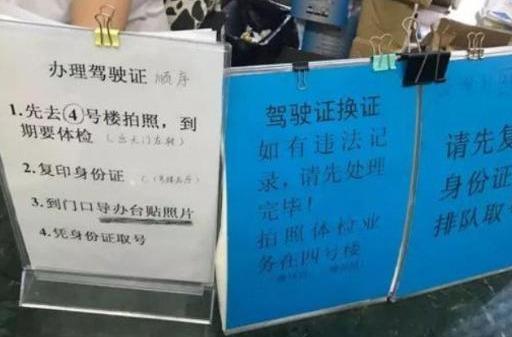 办理驾驶证 顺序
1.先去④号楼拍照，到
期要体检（出大门左转）
2.复印身份证
3.到门口导办台贴照片
4.凭身份证取号
驾驶证换证
如有违法记
录，请先处理
完毕！
拍照体检业
务在四号楼
请先复
身份证
排队取